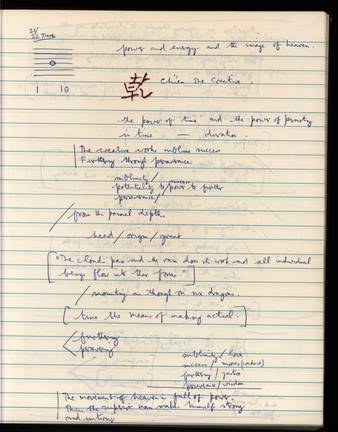 21/
22 June
power and energy and the image of heaven.
1 10
乾 Ch'ien The Creative.
the power of time and the power of persisting
in time — duration.
The creative works sublime success
Furthering through perseverance.
sublimity/
potentiality to success/power to further
perseverance/
/from the primal depths
head/origin/great
["The clouds pass and the rain does its work and all individual
beings flow into their forms."]
/mounting as though on six dragons.
[time the means of making actual.]
furthering
persevering
sublimity/love
success/mores (conduct)
furthering/justice
perseverance/wisdom
The movement of heaven is full of power.
Thus the superior man makes himself strong
and untiring